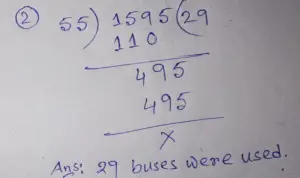 ② 55) 1595 (29
110
495
495
×
Ans: 29 buses were used.